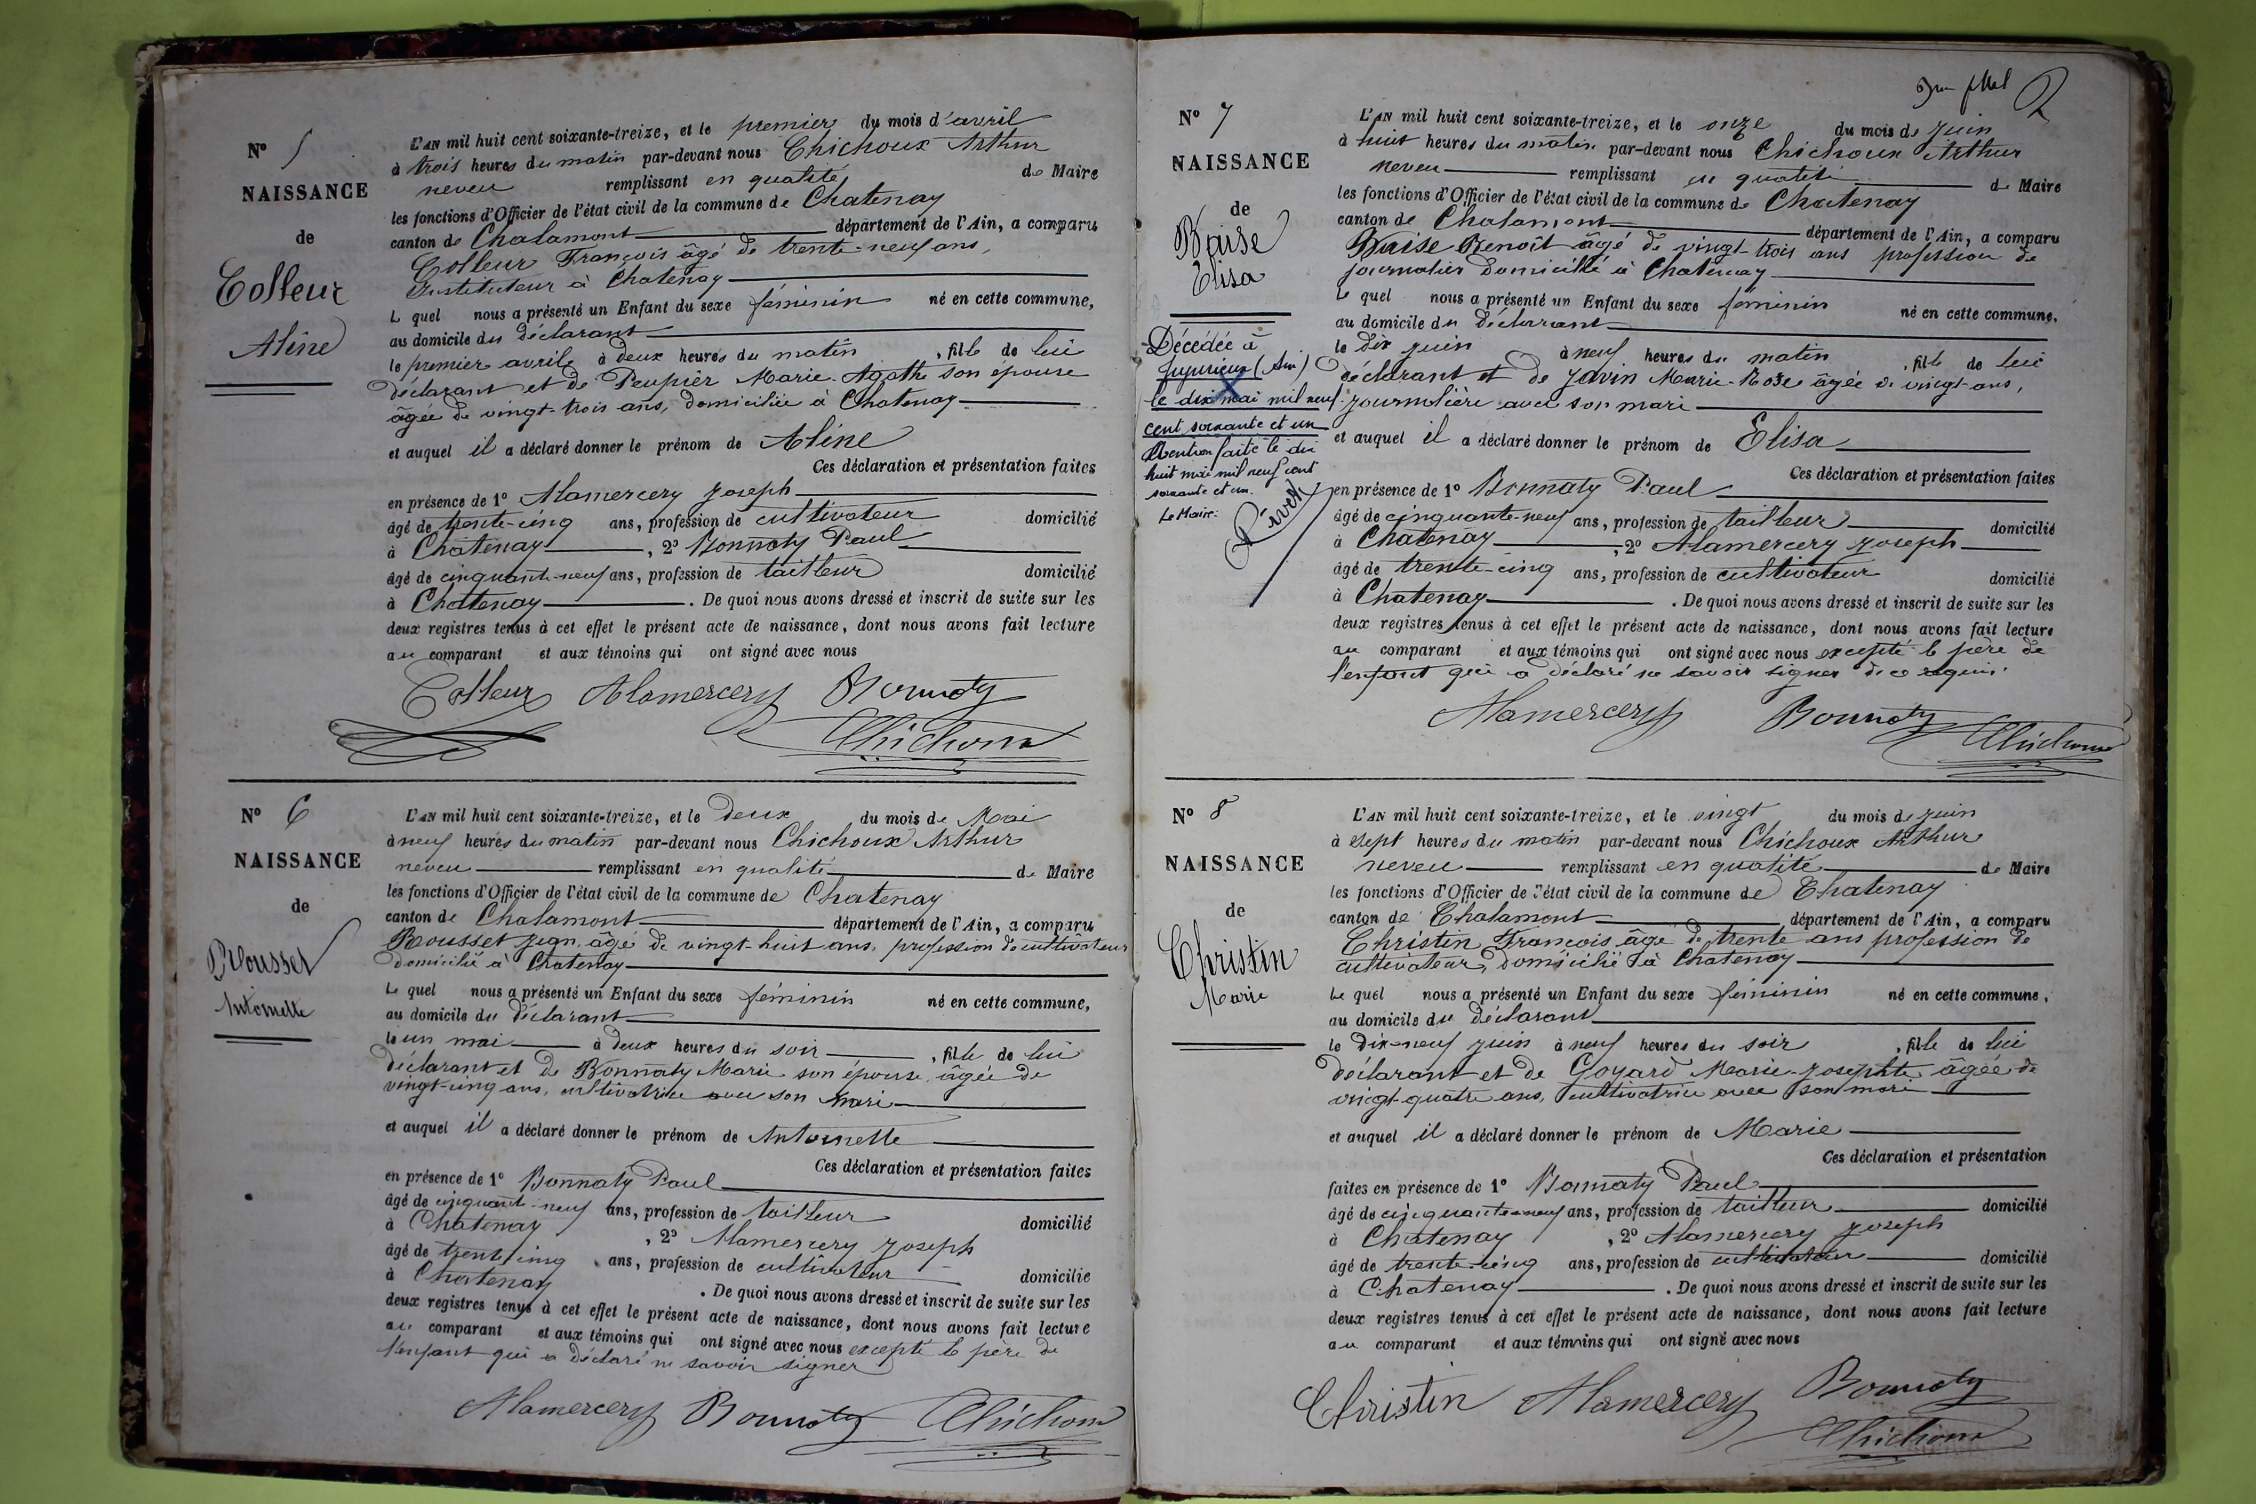 N° 5
NAISSANCE
de
Colleur
Aline
L'AN mil huit cent soixante-treize, et le premier du mois d'avril
à trois heures du matin par-devant nous Chichoux Arthur
neveu remplissant en qualité de Maire
les fonctions d'Officier de l'état civil de la commune de Chatenay
canton de Chalamont département de l'Ain, a comparu
Colleur François âgé de trente-neuf ans,
Instituteur à Chatenay
Le quel nous a présenté un Enfant du sexe féminin né en cette commune,
au domicile du déclarant
le premier avril à deux heures du matin, fille de lui
déclarant et de Peupier Marie-Agathe son épouse
âgée de vingt-trois ans, domiciliée à Chatenay
et auquel il a déclaré donner le prénom de Aline
Ces déclaration et présentation faites
en présence de 1° Alamercery Joseph
âgé de trente-cinq ans, profession de cultivateur domicilié
à Chatenay, 2° Bonnaty Paul
âgé de cinquante-neuf ans, profession de tailleur domicilié
à Chatenay. De quoi nous avons dressé et inscrit de suite sur les
deux registres tenus à cet effet le présent acte de naissance, dont nous avons fait lecture
au comparant et aux témoins qui ont signé avec nous
Colleur Alamercery Bonnaty
Chichoux
N° 6
NAISSANCE
de
Rousset
Antoinette
L'AN mil huit cent soixante-treize, et le deux du mois de Mai
à neuf heures du matin par-devant nous Chichoux Arthur
neveu remplissant en qualité de Maire
les fonctions d'Officier de l'état civil de la commune de Chatenay
canton de Chalamont département de l'Ain, a comparu
Rousset Jean, âgé de vingt-huit ans, profession de cultivateur
domicilié à Chatenay
Le quel nous a présenté un Enfant du sexe féminin né en cette commune,
au domicile du déclarant
le un mai à deux heures du soir, fille de lui
déclarant et de Bonnaty Marie son épouse, âgée de
vingt-cinq ans, cultivatrice avec son mari
et auquel il a déclaré donner le prénom de Antoinette
Ces déclaration et présentation faites
en présence de 1° Bonnaty Paul
âgé de cinquante-neuf ans, profession de tailleur domicilié
à Chatenay, 2° Alamercery Joseph
âgé de trente cinq ans, profession de cultivateur domicilié
à Chatenay. De quoi nous avons dressé et inscrit de suite sur les
deux registres tenus à cet effet le présent acte de naissance, dont nous avons fait lecture
au comparant et aux témoins qui ont signé avec nous excepté le père de
l'enfant qui a déclaré ne savoir signer
Alamercery Bonnaty Chichoux
2
N° 7
NAISSANCE
de
Baise
Elisa
Décédée à
Jujurieux (Ain)
le dix mai mil neuf
cent soixante et un
Mention faite le dix
huit mai mil neuf cent
soixante et un.
Le Maire:
L'AN mil huit cent soixante-treize, et le onze du mois de Juin
à huit heures du matin par-devant nous Chichoux Arthur
neveu remplissant en qualité de Maire
les fonctions d'Officier de l'état civil de la commune de Chatenay
canton de Chalamont département de l'Ain, a comparu
Baise Benoît âgé de vingt-trois ans profession de
journalier domicilié à Chatenay
Le quel nous a présenté un Enfant du sexe féminin né en cette commune,
au domicile du déclarant
le dix juin à neuf heures du matin, fille de lui
déclarant et de Javin Marie-Rose âgée de vingt-ans,
journalière avec son mari
et auquel il a déclaré donner le prénom de Elisa
Ces déclaration et présentation faites
en présence de 1° Bonnaty Paul
âgé de cinquante-neuf ans, profession de tailleur domicilié
à Chatenay, 2° Alamercery Joseph
âgé de trente-cinq ans, profession de cultivateur domicilié
à Chatenay. De quoi nous avons dressé et inscrit de suite sur les
deux registres tenus à cet effet le présent acte de naissance, dont nous avons fait lecture
au comparant et aux témoins qui ont signé avec nous excepté le père de
l'enfant qui a déclaré ne savoir signer de ce requis.
Alamercery Bonnaty Chichoux
N° 8
NAISSANCE
de
Christin
Marie
L'AN mil huit cent soixante-treize, et le vingt du mois de juin
à sept heures du matin par-devant nous Chichoux Arthur
neveu remplissant en qualité de Maire
les fonctions d'Officier de l'état civil de la commune de Chatenay
canton de Chalamont département de l'Ain, a comparu
Christin François âgé de trente ans profession de
cultivateur, domicilié à Chatenay
Le quel nous a présenté un Enfant du sexe féminin né en cette commune,
au domicile du déclarant
le dix-neuf juin à neuf heures du soir, fille de lui
déclarant et de Goyard Marie-Josephte âgée de
vingt-quatre ans, cultivatrice avec son mari
et auquel il a déclaré donner le prénom de Marie
Ces déclaration et présentation
faites en présence de 1° Bonnaty Paul
âgé de cinquante-neuf ans, profession de tailleur domicilié
à Chatenay, 2° Alamercery Joseph
âgé de trente-cinq ans, profession de cultivateur domicilié
à Chatenay. De quoi nous avons dressé et inscrit de suite sur les
deux registres tenus à cet effet le présent acte de naissance, dont nous avons fait lecture
au comparant et aux témoins qui ont signé avec nous
Christin Alamercery Bonnaty
Chichoux